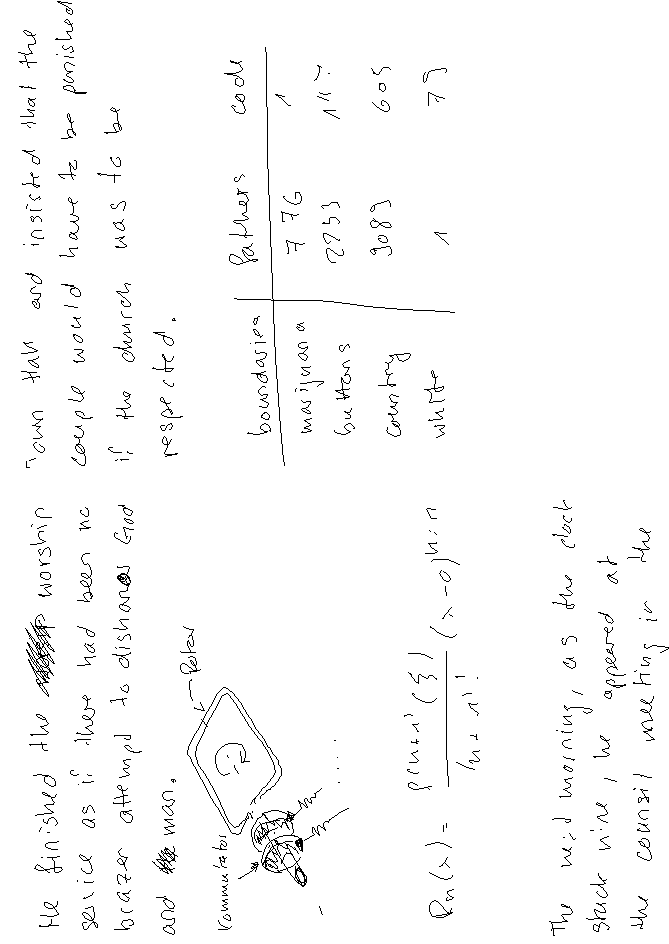 He finished the worship
service as if there had been no
brazen attempt to dishonor God
and man.
Rotor
Kommutator
Rn(x) =
The next morning, as the clock
struck nine, he appeared at
the counsil meeting in the
Town Hall and insisted that the
couple would have to be punished
if the church was to be
respected.
boundaries fathers code
marijuana 776 1
buttons 2253
country 9089 605
white 1 79